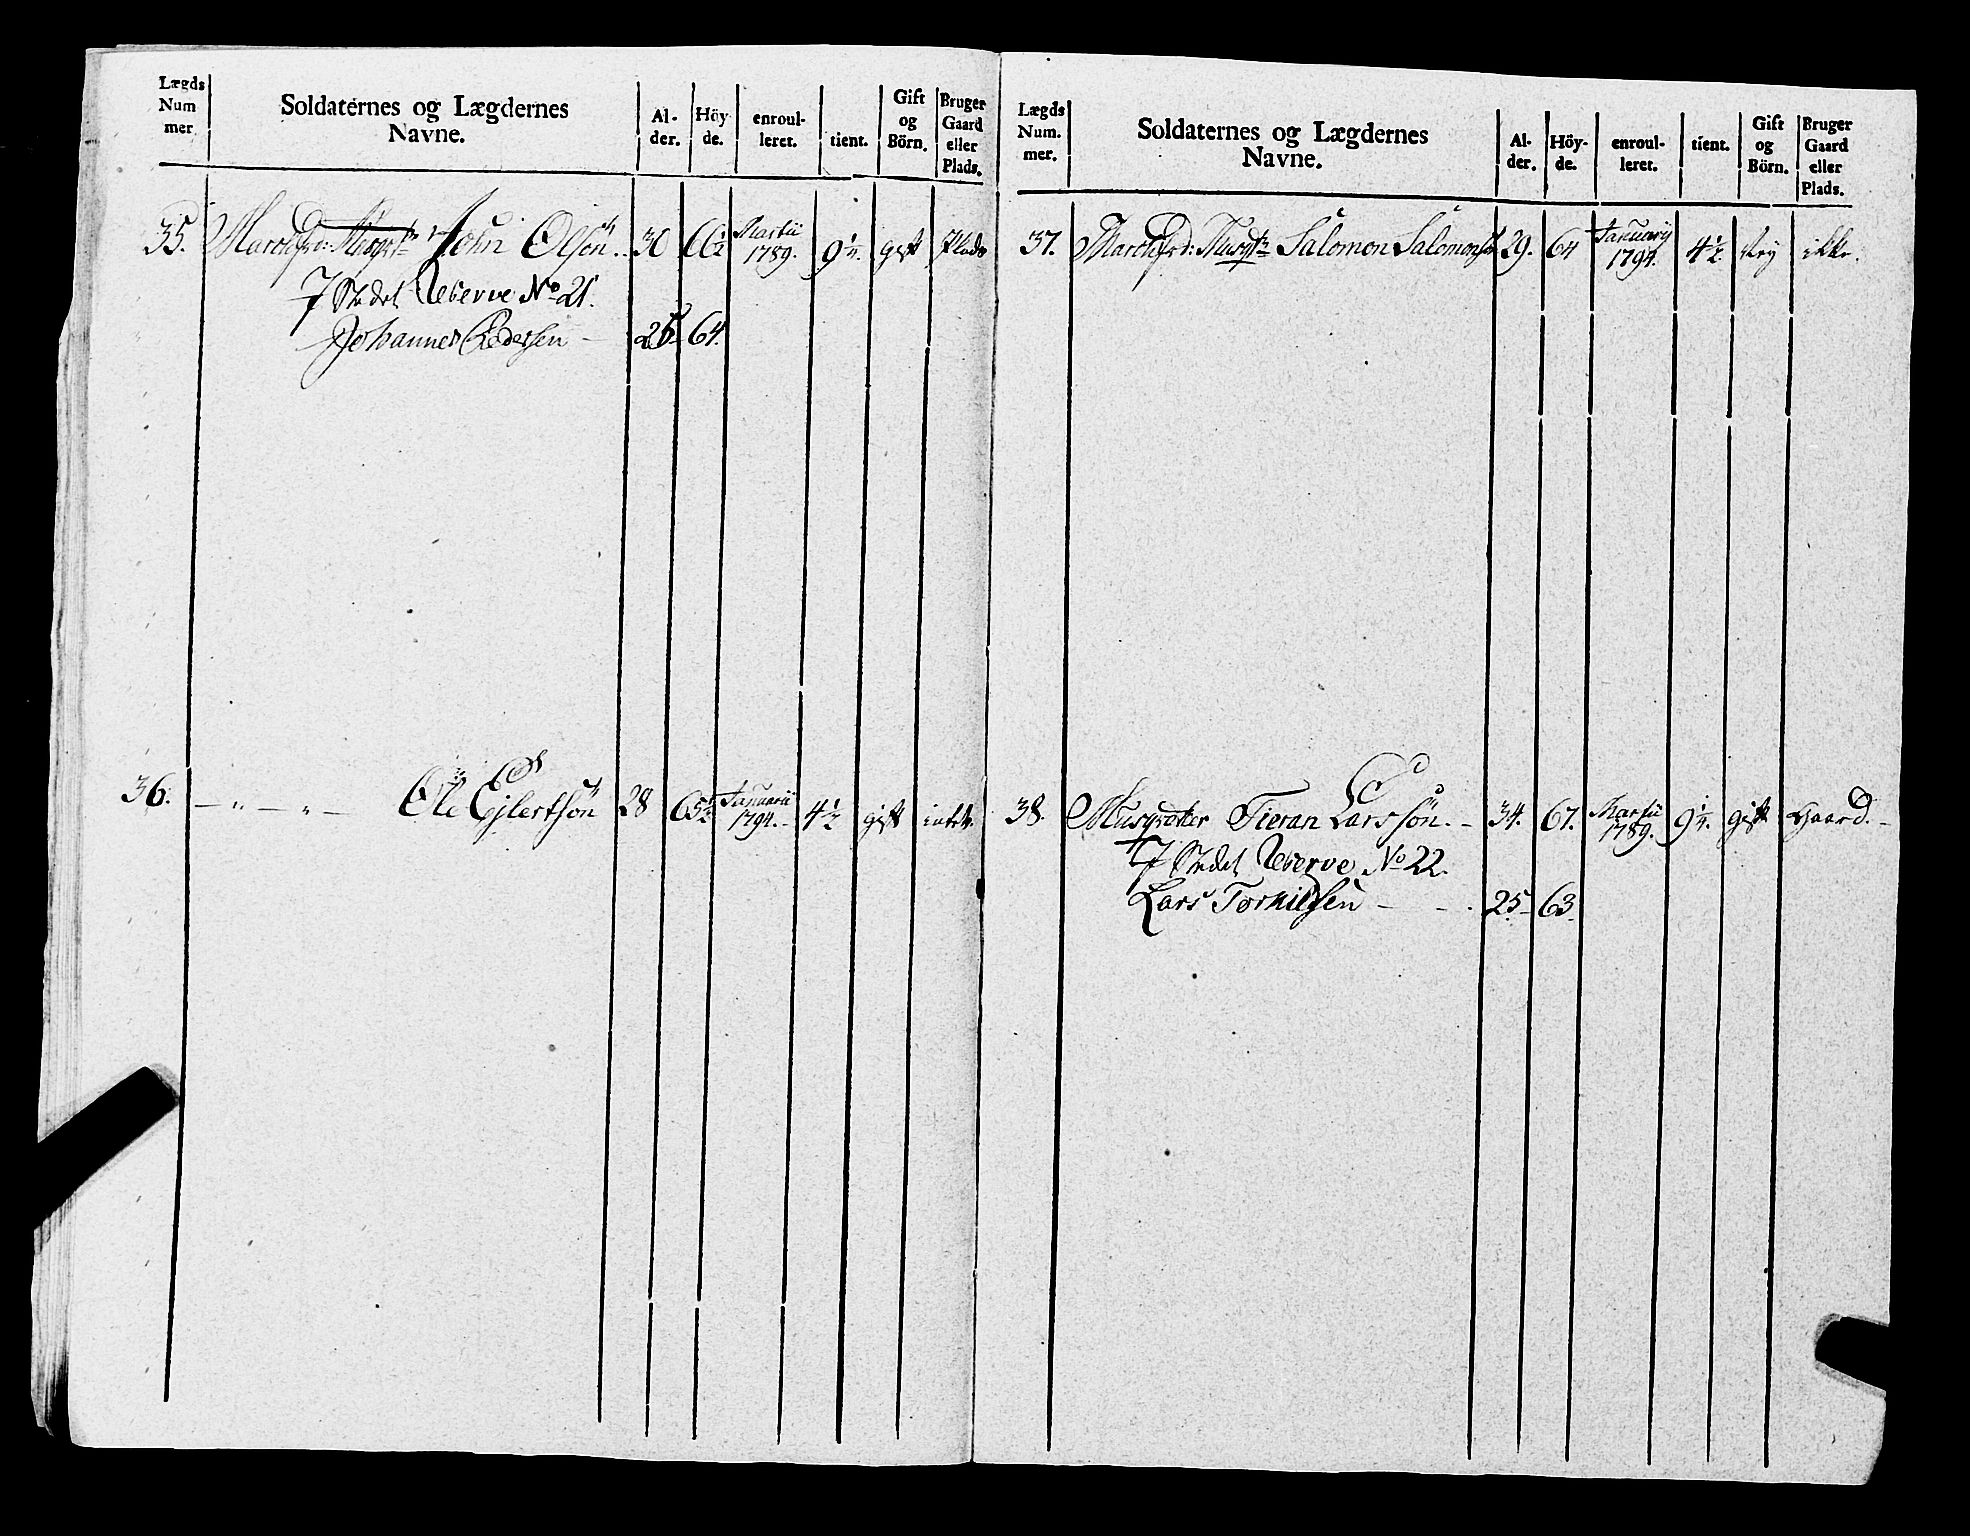 Lægds Num mer.
Soldaternes og Lægdernes Navne.
Al- der.
Höy- de.
enroul- leret.
tient.
Gift og Börn.
Bruger Gaard eller Plads.
35. John Olsön 30 66½ Martii 1789. 9¼ gift Plads
Reserve No 21.
Johannes Pedersen 25 64.
36. — " — " — Ole Ejlertsön 28 65½ Januarii 1794. 4½ gift intet.
Lægds Num. mer.
Soldaternes og Lægdernes Navne.
Al- der.
Höy- de.
enroul- leret.
tient.
Gift og Börn.
Bruger Gaard eller Plads.
37. Salomon Salomonsön 29. 64 Januarij 1794. 4½ ikke.
38. Larssön. 34. 67. Martii 1789. 9¼. gift Gaard.
Reserve No 22.
Lars Torkildsen 25 63